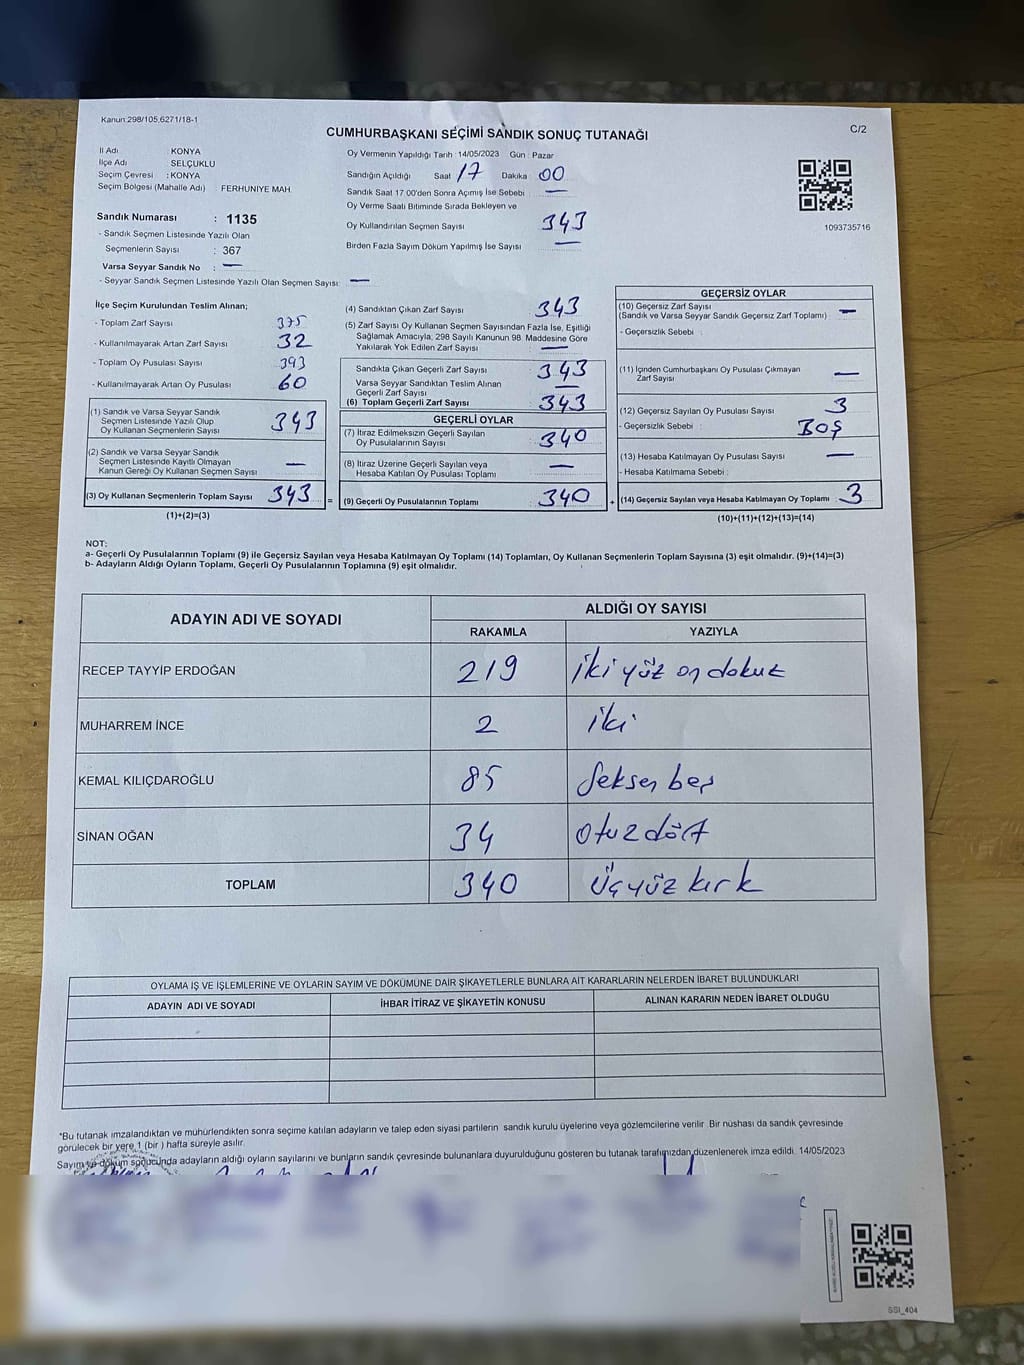 Kanun:298/105,6271/18-1
CUMHURBAŞKANI SEÇİMİ SANDIK SONUÇ TUTANAĞI
C/2
İl Adı : KONYA
İlçe Adı : SELÇUKLU
Seçim Çevresi : KONYA
Seçim Bölgesi (Mahalle Adı) : FERHUNİYE MAH.
Sandık Numarası : 1135
- Sandık Seçmen Listesinde Yazılı Olan
Seçmenlerin Sayısı : 367
Varsa Seyyar Sandık No : —
- Seyyar Sandık Seçmen Listesinde Yazılı Olan Seçmen Sayısı: —
Oy Vermenin Yapıldığı Tarih : 14/05/2023 Gün : Pazar
Sandığın Açıldığı Saat 17 Dakika 00
Sandık Saat 17.00'den Sonra Açımış İse Sebebi : —
Oy Verme Saati Bitiminde Sırada Bekleyen ve
Oy Kullandırılan Seçmen Sayısı 343
Birden Fazla Sayım Döküm Yapılmış İse Sayısı —
1093735716
İlçe Seçim Kurulundan Teslim Alınan;
- Toplam Zarf Sayısı 375
- Kullanılmayarak Artan Zarf Sayısı 32
- Toplam Oy Pusulası Sayısı 393
- Kullanılmayarak Artan Oy Pusulası 60
(1) Sandık ve Varsa Seyyar Sandık
Seçmen Listesinde Yazılı Olup
Oy Kullanan Seçmenlerin Sayısı 343
(2) Sandık ve Varsa Seyyar Sandık
Seçmen Listesinde Kayıtlı Olmayan
Kanun Gereği Oy Kullanan Seçmen Sayısı —
(3) Oy Kullanan Seçmenlerin Toplam Sayısı 343 =
(1)+(2)=(3)
(4) Sandıktan Çıkan Zarf Sayısı 343
(5) Zarf Sayısı Oy Kullanan Seçmen Sayısından Fazla İse, Eşitliği
Sağlamak Amacıyla; 298 Sayılı Kanunun 98. Maddesine Göre
Yakılarak Yok Edilen Zarf Sayısı —
Sandıkta Çıkan Geçerli Zarf Sayısı 343
Varsa Seyyar Sandıktan Teslim Alınan
Geçerli Zarf Sayısı —
(6) Toplam Geçerli Zarf Sayısı 343
GEÇERLİ OYLAR
(7) İtiraz Edilmeksizin Geçerli Sayılan
Oy Pusulalarının Sayısı 340
(8) İtiraz Üzerine Geçerli Sayılan veya
Hesaba Katılan Oy Pusulası Toplamı —
(9) Geçerli Oy Pusulalarının Toplamı 340 +
GEÇERSİZ OYLAR
(10) Geçersiz Zarf Sayısı
(Sandık ve Varsa Seyyar Sandık Geçersiz Zarf Toplamı) —
- Geçersizlik Sebebi :
(11) İçinden Cumhurbaşkanı Oy Pusulası Çıkmayan
Zarf Sayısı —
(12) Geçersiz Sayılan Oy Pusulası Sayısı 3
- Geçersizlik Sebebi : BOŞ
(13) Hesaba Katılmayan Oy Pusulası Sayısı —
- Hesaba Katılmama Sebebi :
(14) Geçersiz Sayılan veya Hesaba Katılmayan Oy Toplamı : 3
(10)+(11)+(12)+(13)=(14)
NOT:
a- Geçerli Oy Pusulalarının Toplamı (9) ile Geçersiz Sayılan veya Hesaba Katılmayan Oy Toplamı (14) Toplamları, Oy Kullanan Seçmenlerin Toplam Sayısına (3) eşit olmalıdır. (9)+(14)=(3)
b- Adayların Aldığı Oyların Toplamı, Geçerli Oy Pusulalarının Toplamına (9) eşit olmalıdır.
ADAYIN ADI VE SOYADI ALDIĞI OY SAYISI
RAKAMLA YAZIYLA
RECEP TAYYİP ERDOĞAN 219 iki yüz on dokuz
MUHARREM İNCE 2 iki
KEMAL KILIÇDAROĞLU 85 Seksen beş
SİNAN OĞAN 34 otuz dört
TOPLAM 340 üçyüz kırk
OYLAMA İŞ VE İŞLEMLERİNE VE OYLARIN SAYIM VE DÖKÜMÜNE DAİR ŞİKAYETLERLE BUNLARA AİT KARARLARIN NELERDEN İBARET BULUNDUKLARI
ADAYIN ADI VE SOYADI İHBAR İTİRAZ VE ŞİKAYETİN KONUSU ALINAN KARARIN NEDEN İBARET OLDUĞU
*Bu tutanak imzalandıktan ve mühürlendikten sonra seçime katılan adayların ve talep eden siyasi partilerin sandık kurulu üyelerine veya gözlemcilerine verilir. Bir nüshası da sandık çevresinde
görülecek bir yere 1 (bir ) hafta süreyle asılır.
Sayım ve döküm sonucunda adayların aldığı oyların sayılarını ve bunların sandık çevresinde bulunanlara duyurulduğunu gösteren bu tutanak tarafımızdan düzenlenerek imza edildi. 14/05/2023
SSI_404